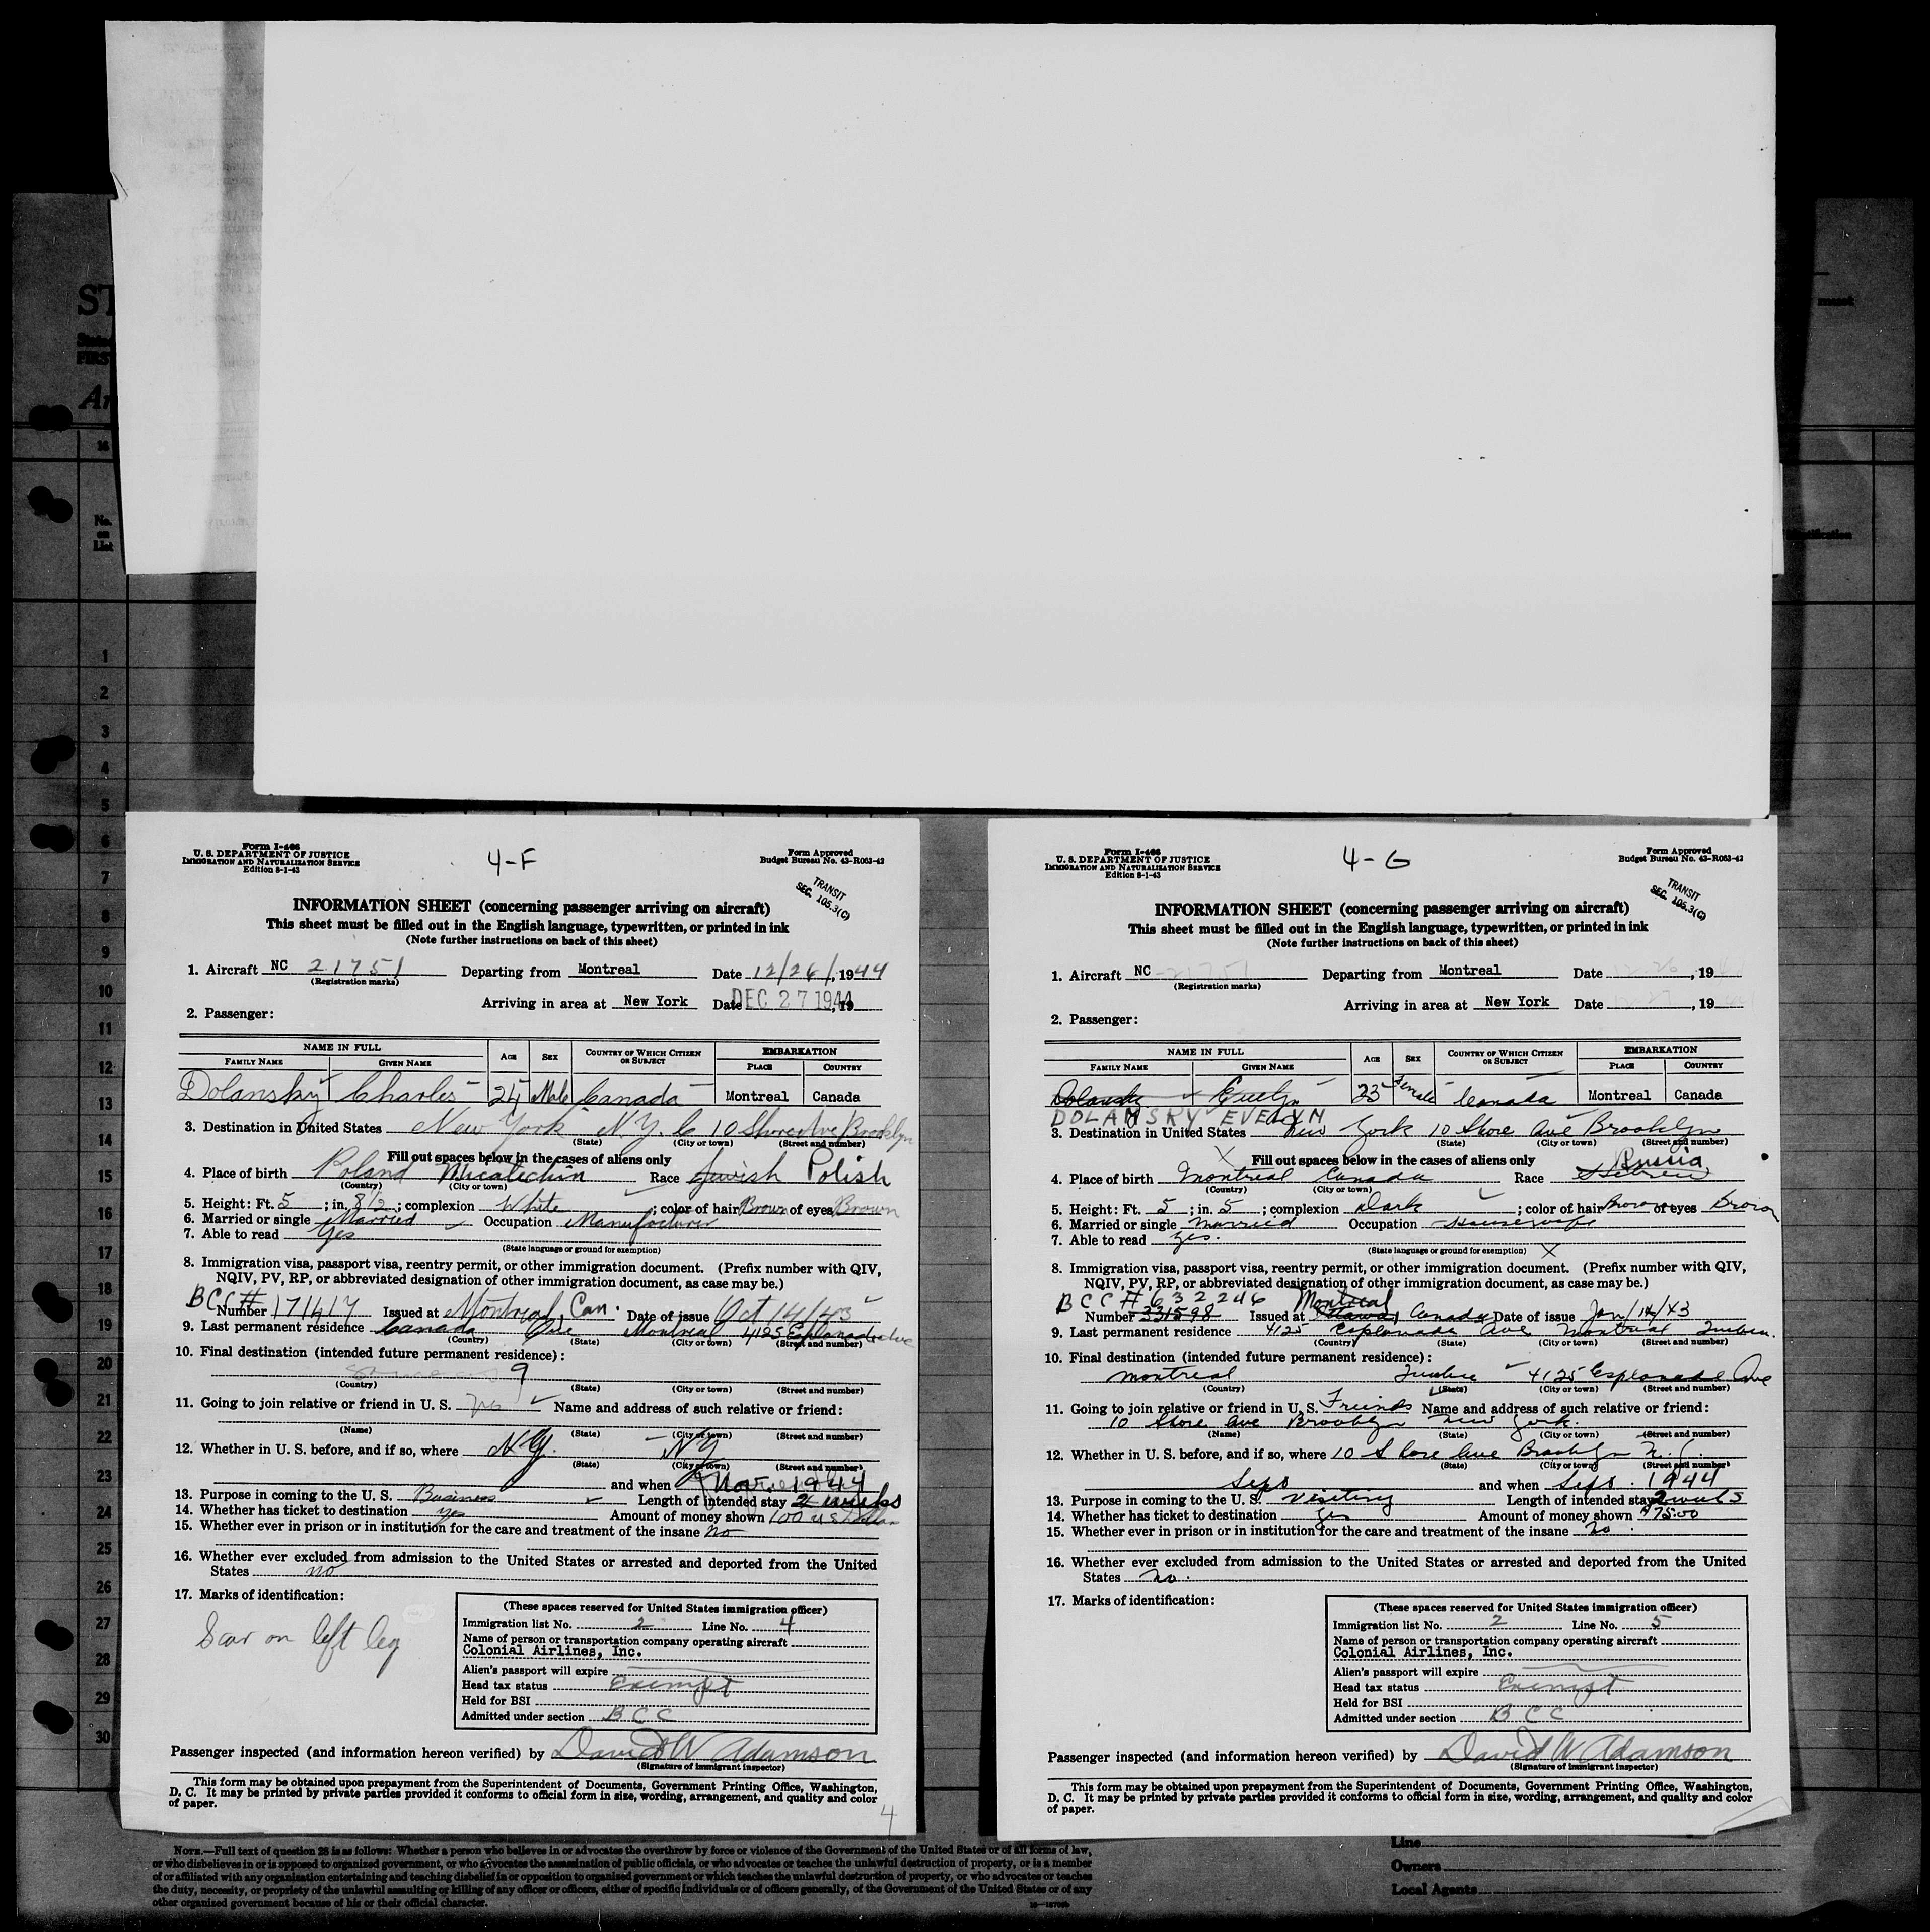 ST
FIRST
Ar
16
No.
on
List
1
2
3
4
5
6
7
8
9
10
11
12
13
14
15
16
17
18
19
20
21
22
23
24
25
26
27
28
29
30
Form I-466
U. S. DEPARTMENT OF JUSTICE
IMMIGRATION AND NATURALIZATION SERVICE
Edition 8-1-43
4-F
Form Approved
Budget Bureau No. 43-R063-42
TRANSIT
SEC. 105.3(C)
INFORMATION SHEET (concerning passenger arriving on aircraft)
This sheet must be filled out in the English language, typewritten, or printed in ink
(Note further instructions on back of this sheet)
1. Aircraft NC 21751 Departing from Montreal Date 12/26/, 1944
(Registration marks)
Arriving in area at New York Date DEC 27 1944, 19
2. Passenger:
NAME IN FULL AGE SEX COUNTRY OF WHICH CITIZEN OR SUBJECT EMBARKATION
FAMILY NAME GIVEN NAME PLACE COUNTRY
Dolansky Charles 25 Male Canada Montreal Canada
3. Destination in United States New York N.Y. C 10 Shore Ave Brooklyn
(State) (City or town) (Street and number)
Fill out spaces below in the cases of aliens only
4. Place of birth Poland Micatechin Race Jewish Polish
(Country) (City or town)
5. Height: Ft. 5; in. 8 1/2; complexion White; color of hair Brown of eyes Brown
6. Married or single Married Occupation Manufacturer
7. Able to read Yes
(State language or ground for exemption)
8. Immigration visa, passport visa, reentry permit, or other immigration document. (Prefix number with QIV,
NQIV, PV, RP, or abbreviated designation of other immigration document, as case may be.)
BCC#
Number 171417 Issued at Montreal, Can. Date of issue Oct/14/43
9. Last permanent residence Canada Que Montreal 4125 Esplanade Ave
(Country) (State) (City or town) (Street and number)
10. Final destination (intended future permanent residence):
9
(Country) (State) (City or town) (Street and number)
11. Going to join relative or friend in U. S. Yes Name and address of such relative or friend:
(Name) (State) (City or town) (Street and number)
12. Whether in U. S. before, and if so, where N.Y. NY
(State) (City or town) (Street and number)
and when Nov. 1944
13. Purpose in coming to the U. S. Business Length of intended stay 2 weeks
14. Whether has ticket to destination yes Amount of money shown 100 U S Dollars
15. Whether ever in prison or in institution for the care and treatment of the insane No
16. Whether ever excluded from admission to the United States or arrested and deported from the United
States no
17. Marks of identification:
Scar on left leg
(These spaces reserved for United States immigration officer)
Immigration list No. 2 Line No. 4
Name of person or transportation company operating aircraft
Colonial Airlines, Inc.
Alien's passport will expire
Head tax status Exempt
Held for BSI
Admitted under section B C C
Passenger inspected (and information hereon verified) by David W Adamson
(Signature of immigrant inspector)
This form may be obtained upon prepayment from the Superintendent of Documents, Government Printing Office, Washington,
D. C. It may be printed by private parties provided it conforms to official form in size, wording, arrangement, and quality and color
of paper.
4
Form I-466
U. S. DEPARTMENT OF JUSTICE
IMMIGRATION AND NATURALIZATION SERVICE
Edition 8-1-43
4-G
Form Approved
Budget Bureau No. 43-R063-42
TRANSIT
SEC. 105.3(C)
INFORMATION SHEET (concerning passenger arriving on aircraft)
This sheet must be filled out in the English language, typewritten, or printed in ink
(Note further instructions on back of this sheet)
1. Aircraft NC 21751 Departing from Montreal Date 12-26, 19
(Registration marks)
Arriving in area at New York Date 12-27, 19
2. Passenger:
NAME IN FULL AGE SEX COUNTRY OF WHICH CITIZEN OR SUBJECT EMBARKATION
FAMILY NAME GIVEN NAME PLACE COUNTRY
Dolansky Evelyn 23 Female Canada Montreal Canada
DOLANSKY EVELYN
3. Destination in United States New York 10 Shore Ave Brooklyn
(State) (City or town) (Street and number)
Fill out spaces below in the cases of aliens only
Russia
4. Place of birth Montreal Canada Race Hebrew
(Country) (City or town)
5. Height: Ft. 5; in. 5; complexion Dark; color of hair Brown of eyes Brown
6. Married or single Married Occupation Housewife
7. Able to read Yes.
(State language or ground for exemption)
8. Immigration visa, passport visa, reentry permit, or other immigration document. (Prefix number with QIV,
NQIV, PV, RP, or abbreviated designation of other immigration document, as case may be.)
BCC # 632246 Montreal
Number 331598 Issued at Ottawa, Canada Date of issue Jan/14/43
9. Last permanent residence 4125 Esplanade Ave Montreal Quebec.
(Country) (State) (City or town) (Street and number)
10. Final destination (intended future permanent residence):
Montreal Quebec 4125 Esplanade Ave
(Country) (State) (City or town) (Street and number)
11. Going to join relative or friend in U. S. Friends Name and address of such relative or friend:
10 Shore Ave Brooklyn New York.
(Name) (State) (City or town) (Street and number)
12. Whether in U. S. before, and if so, where 10 Shore Ave Brooklyn N.Y.
(State) (City or town) (Street and number)
Sept and when Sept. 1944
13. Purpose in coming to the U. S. Visiting Length of intended stay 2 weeks
14. Whether has ticket to destination Yes Amount of money shown $75.00
15. Whether ever in prison or in institution for the care and treatment of the insane No.
16. Whether ever excluded from admission to the United States or arrested and deported from the United
States No.
17. Marks of identification:
(These spaces reserved for United States immigration officer)
Immigration list No. 2 Line No. 5
Name of person or transportation company operating aircraft
Colonial Airlines, Inc.
Alien's passport will expire
Head tax status Exempt
Held for BSI
Admitted under section B C C
Passenger inspected (and information hereon verified) by David W Adamson
(Signature of immigrant inspector)
This form may be obtained upon prepayment from the Superintendent of Documents, Government Printing Office, Washington,
D. C. It may be printed by private parties provided it conforms to official form in size, wording, arrangement, and quality and color
of paper.
NOTE.—Full text of question 28 is as follows: Whether a person who believes in or advocates the overthrow by force or violence of the Government of the United States or of all forms of law,
or who disbelieves in or is opposed to organized government, or who advocates the assassination of public officials, or who advocates or teaches the unlawful destruction of property, or is a member
of or affiliated with any organization entertaining and teaching disbelief in or opposition to organized government or which teaches the unlawful destruction of property, or who advocates or teaches
the duty, necessity, or propriety of the unlawful assaulting or killing of any officer or officers, either of specific individuals or of officers generally, of the Government of the United States or of any
other organized government because of his or their official character.
Line
Owners
Local Agents